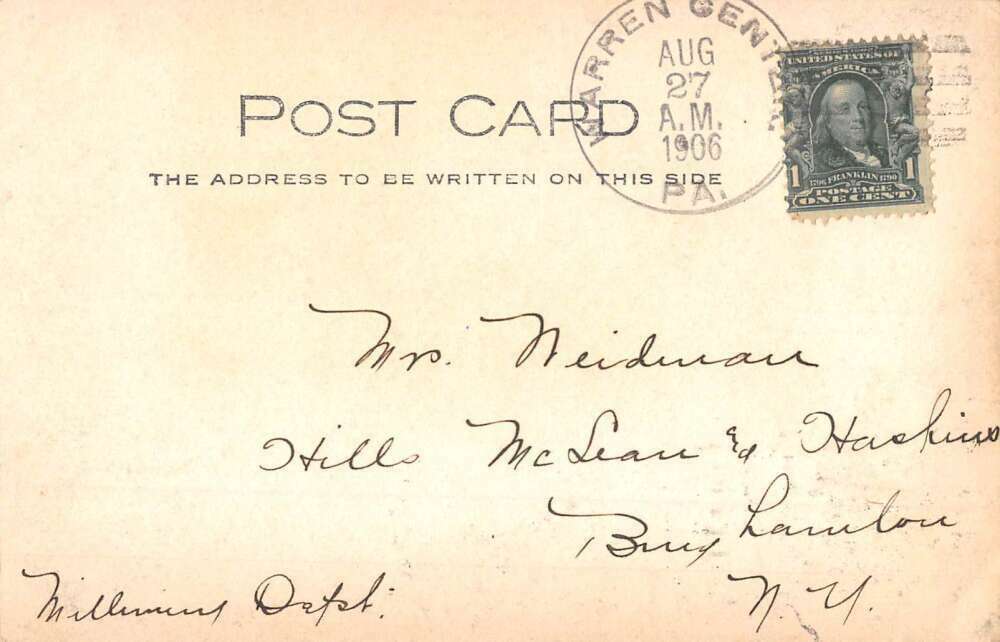 POST CARD
THE ADDRESS TO BE WRITTEN ON THIS SIDE
WARREN CENTER
AUG
27
A.M.
1906
PA.
UNITED STATES OF
AMERICA
1 1
1706 FRANKLIN 1790
POSTAGE
ONE CENT
Mrs. Weidman
Hills McLean & Haskins
Binghamton
N. Y.
Millinery Dept.